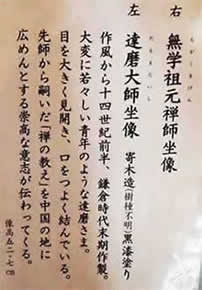 右　無学祖元禅師坐像
むがくそげん
左　達磨大師坐像　寄木造(樹種不明)黒漆塗り
だるまだいし
作風から十四世紀前半、鎌倉時代末期作製。
大変に若々しい青年のような達磨さま。
目を大きく見開き、口をつよく結んでいる。
先師から嗣いだ「禅の教え」を中国の地に
広めんとする崇高な意志が伝わってくる。
像高五二・七cm